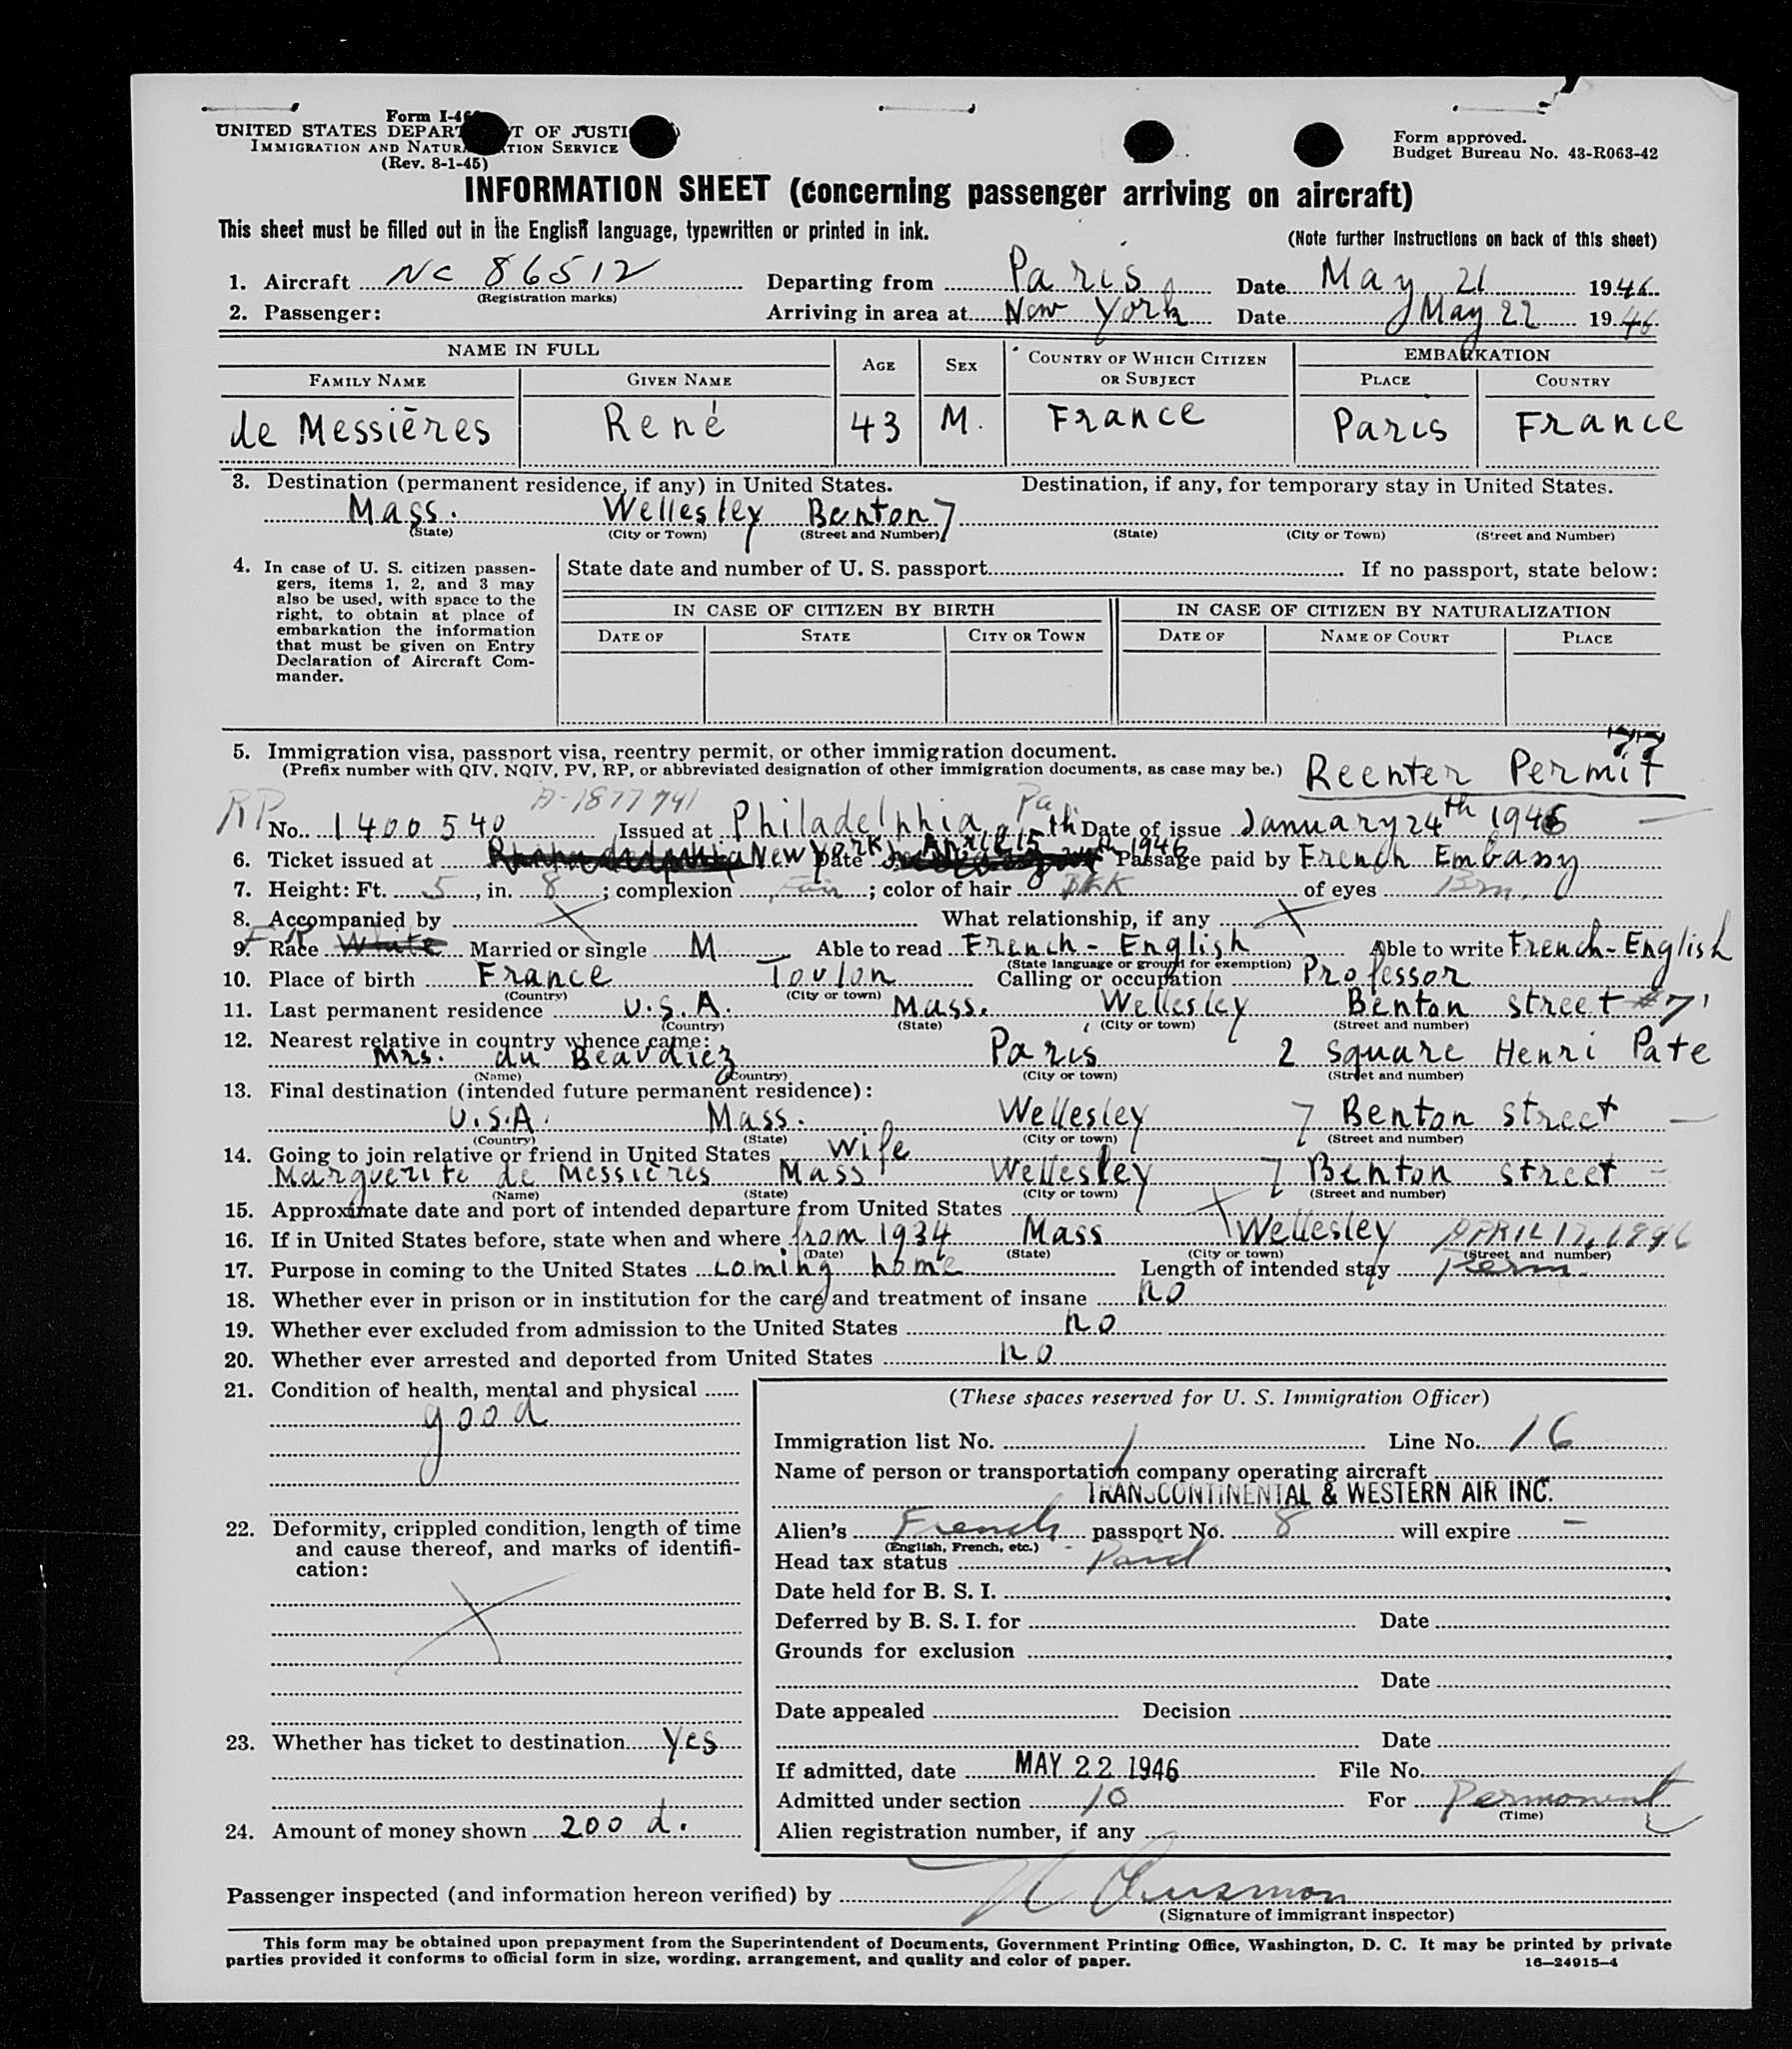 Form I-4
UNITED STATES DEPART T OF JUSTI
IMMIGRATION AND NATUR TION SERVICE
(Rev. 8-1-45)
Form approved.
Budget Bureau No. 43-R063-42
INFORMATION SHEET (concerning passenger arriving on aircraft)
This sheet must be filled out in the English language, typewritten or printed in ink.
(Note further instructions on back of this sheet)
1. Aircraft NC 86512 Departing from Paris Date May 21 1946
(Registration marks)
2. Passenger: Arriving in area at New York Date May 22 1946
NAME IN FULL AGE SEX COUNTRY OF WHICH CITIZEN OR SUBJECT EMBARKATION
FAMILY NAME GIVEN NAME PLACE COUNTRY
de Messières René 43 M. France Paris France
3. Destination (permanent residence, if any) in United States. Destination, if any, for temporary stay in United States.
Mass. Wellesley Benton 7
(State) (City or Town) (Street and Number) (State) (City or Town) (Street and Number)
4. In case of U. S. citizen passen-
gers, items 1, 2, and 3 may
also be used, with space to the
right, to obtain at place of
embarkation the information
that must be given on Entry
Declaration of Aircraft Com-
mander.
State date and number of U. S. passport If no passport, state below:
IN CASE OF CITIZEN BY BIRTH IN CASE OF CITIZEN BY NATURALIZATION
DATE OF STATE CITY OR TOWN DATE OF NAME OF COURT PLACE
77
5. Immigration visa, passport visa, reentry permit, or other immigration document.
(Prefix number with QIV, NQIV, PV, RP, or abbreviated designation of other immigration documents, as case may be.) Reenter Permit
A-1877741 Pa
RP No. 1400540 Issued at Philadelphia, Date of issue January 24th 1946
6. Ticket issued at New York Date April 15th 1946 Passage paid by French Embassy
7. Height: Ft. 5, in. 8; complexion Fair; color of hair Blk of eyes Brn.
8. Accompanied by X What relationship, if any X
9. Race Fr White Married or single M Able to read French - English Able to write French-English
(State language or ground for exemption)
10. Place of birth France Toulon Calling or occupation Professor
(Country) (City or town)
11. Last permanent residence U.S.A. Mass. Wellesley Benton street #7
(Country) (State) (City or town) (Street and number)
12. Nearest relative in country whence came:
Mrs. du Beaudiez Paris 2 square Henri Pate
(Name) (Country) (City or town) (Street and number)
13. Final destination (intended future permanent residence):
U.S.A. Mass. Wellesley 7 Benton street
(Country) (State) (City or town) (Street and number)
14. Going to join relative or friend in United States Wife
Marguerite de Messières Mass Wellesley 7 Benton street
(Name) (State) (City or town) (Street and number)
15. Approximate date and port of intended departure from United States X
16. If in United States before, state when and where from 1934 Mass Wellesley APRIL 17, 1946
(Date) (State) (City or town) (Street and number)
17. Purpose in coming to the United States coming home Length of intended stay Perm.
18. Whether ever in prison or in institution for the care and treatment of insane no
19. Whether ever excluded from admission to the United States no
20. Whether ever arrested and deported from United States no
21. Condition of health, mental and physical
good
22. Deformity, crippled condition, length of time
and cause thereof, and marks of identifi-
cation:
X
23. Whether has ticket to destination yes
24. Amount of money shown 200 d.
(These spaces reserved for U. S. Immigration Officer)
Immigration list No. 1 Line No. 16
Name of person or transportation company operating aircraft
TRANSCONTINENTAL & WESTERN AIR INC.
Alien's French passport No. 8 will expire –
(English, French, etc.)
Head tax status Paid
Date held for B. S. I.
Deferred by B. S. I. for Date
Grounds for exclusion
Date
Date appealed Decision
Date
If admitted, date MAY 22 1946 File No.
Admitted under section 10 For Permanent
(Time)
Alien registration number, if any
Passenger inspected (and information hereon verified) by
(Signature of immigrant inspector)
This form may be obtained upon prepayment from the Superintendent of Documents, Government Printing Office, Washington, D. C. It may be printed by private
parties provided it conforms to official form in size, wording, arrangement, and quality and color of paper.
16—24915-4